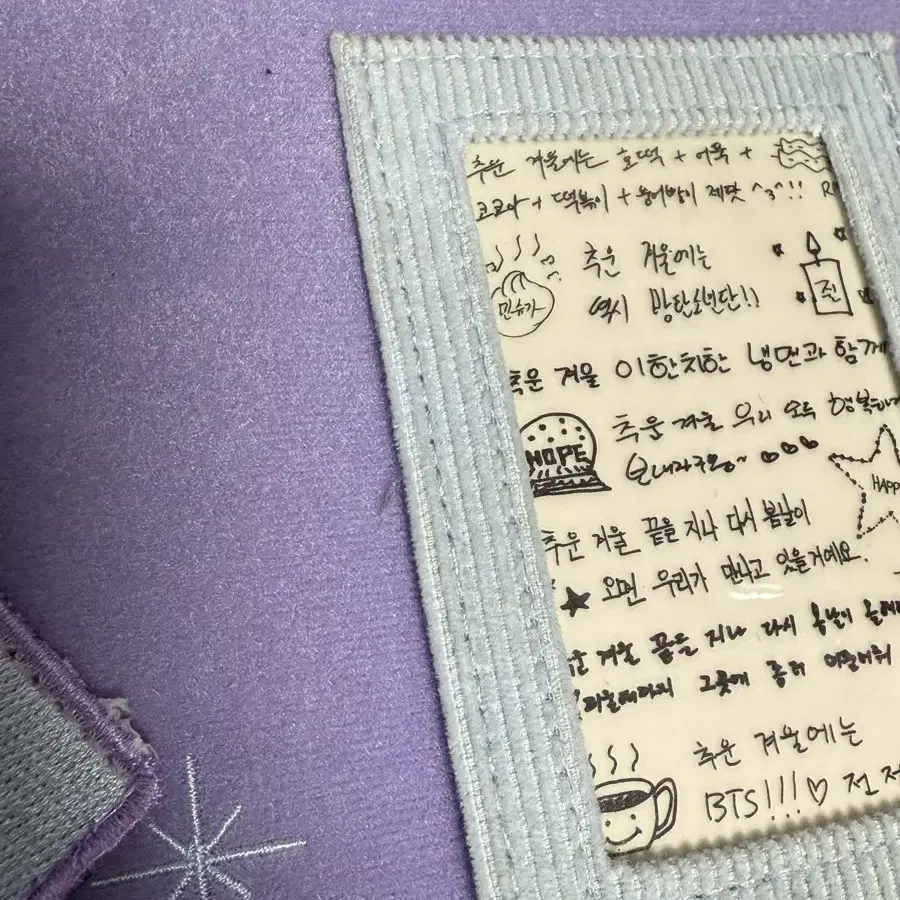 추운 겨울에는 호떡 + 어묵 +
코코아 + 떡볶이 + 붕어빵이 제맛 ^3^!!
추운 겨울에는
민슈가
역시 방탄소년단!)
진
추운 겨울 이한치한 냉면과 함께
추운 겨울 우리 모두 행복하게
HOPE
보내자구요~
HAPP
추운 겨울 끝을 지나 다시 봄날이
오면 우리가 만나고 있을거예요.
추운 겨울 끝을 지나 다시 봄날이 올때
피울때까지 그곳에 좀더 머물러줘
추운 겨울에는
BTS!!!♡ 전